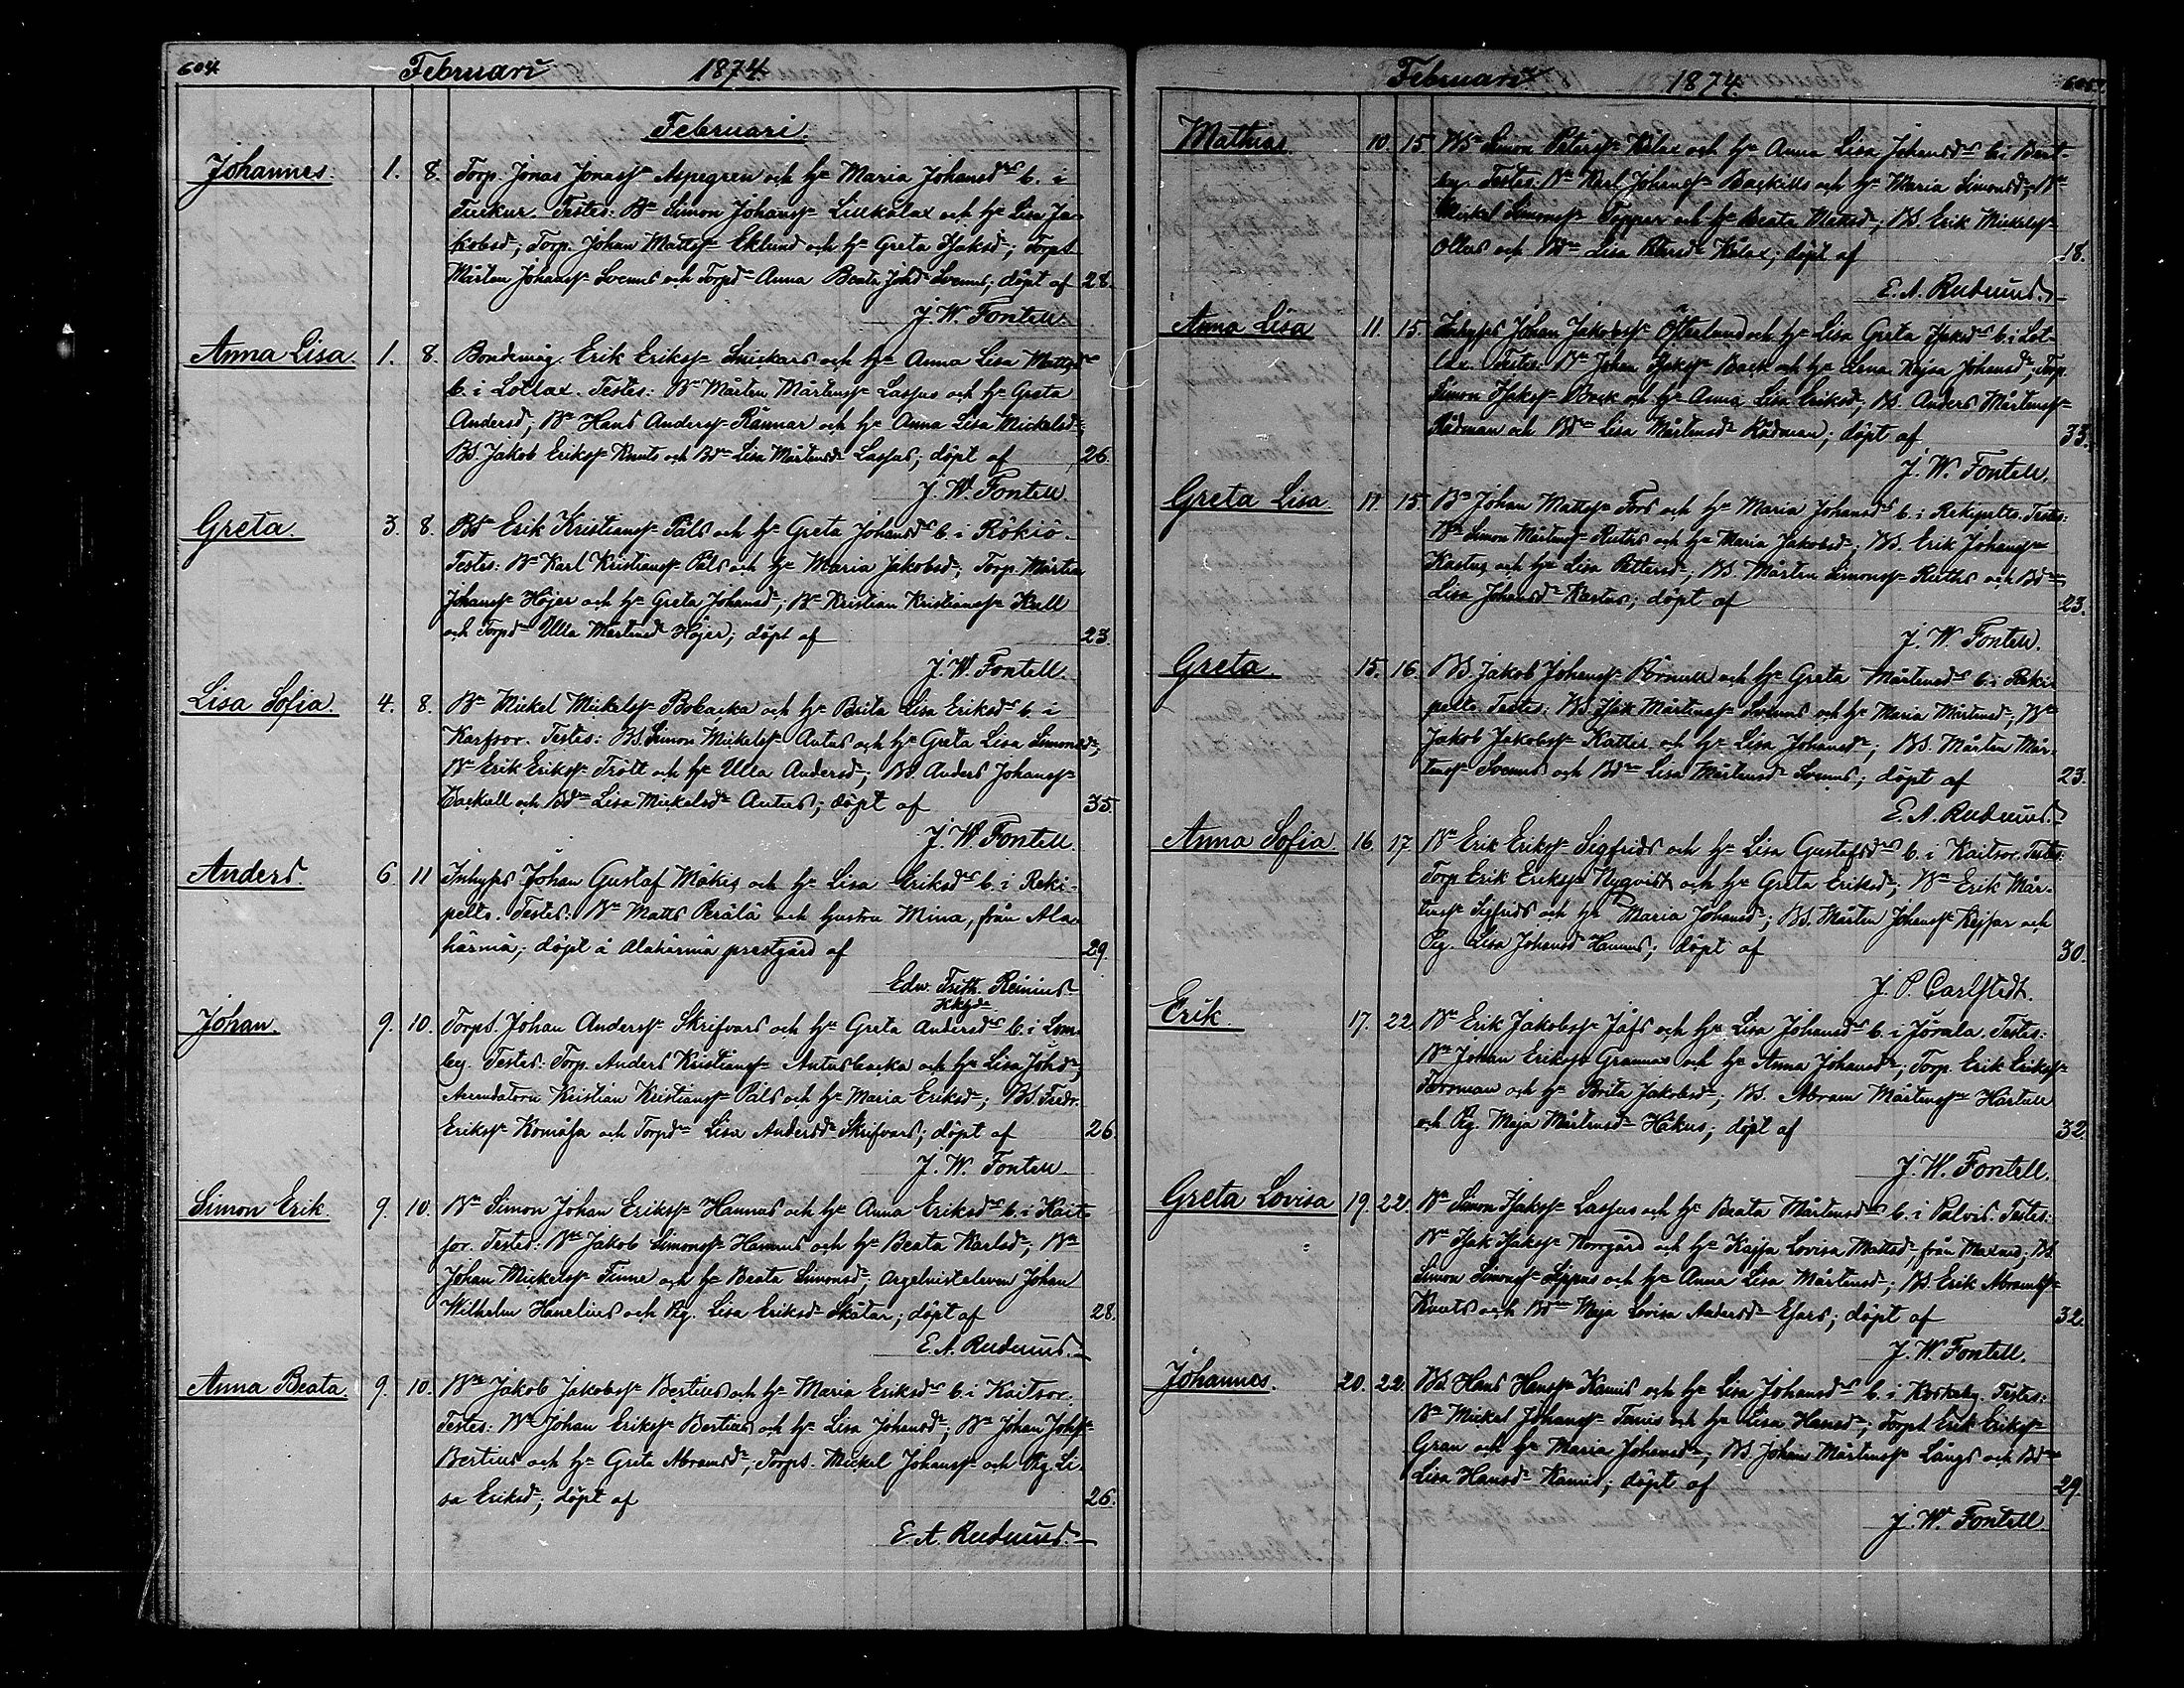 604 Februari 1874
Februari.
Johannes. 1. 8. Torp. Jonas Jonass: Aspegren och h: Maria Johansd:s b. i
Turkur. Testes: Bn Simon Johanss: Lillkålax och h: Lisa Ja-
kobsd:; Torp. Johan Matts: Eklund och h: Greta Isaksd:; Torps
Mårten Johanss: Svenns och Torpd: Anna Beata Johd: Svenns; döpt af 28.
J. W. Fontell.
Anna Lisa. 1. 8. Bondemåg. Erik Erikss: Smickars och h: Anna Lisa Mattsd:s
b. i Lotlax. Testes: Bn Mårten Mårtenss: Lassus och h: Greta
Andersd:; Bn Hans Anderss: Rännar och h: Anna Lisa Mickelsd:;
BS Jakob Erikss: Knuts och Bd: Lisa Mårtensd: Lassus; döpt af 26.
J. W. Fontell
Greta. 3. 8. BS Erik Kristianss: Påls och h: Greta Johansd:s b. i Rökiö.
Testes: Bn Karl Kristianss: Påls och h: Maria Jakobsd:; Torp. Mårten
Johanss: Höjer och h: Greta Johansd:; Bn Kristian Kristianss: Kull
och Torpd: Ulla Mårtensd: Höjer; döpt af 23.
J. W. Fontell.
Lisa Sofia. 4. 8. Bn Mickel Mickelss: Bobacka och h: Brita Lisa Eriksd:s b. i
Karfsor. Testes: BS. Simon Mickelss: Antus och h: Greta Lisa Simonsd:;
Bn Erik Erikss: Trött och h: Ulla Andersd:; BS. Anders Johanss:
Backull och Bd: Lisa Mickelsd: Antus; döpt af 35.
J. W. Fontell.
Anders. 6. 11 Inhyss Johan Gustaf Mäkis och h: Lisa Eriksd:s b. i Reki-
pelto. Testes: Bn Matts Perälä och hustru Mina, från Ala-
härmä; döpt å Alahärmä prestgård af 29.
Edv. Frith. Reinius.
Johan. 9. 10. Torps. Johan Anderss: Skrifvars och h: Greta Andersd:s b. i Lom-
by. Testes: Torp. Anders Kristianss: Antusbacka och h: Lisa Johd:;
Arrendatorn Kristian Kristianss: Påls och h: Maria Eriksd:; BS. Fredr.
Erikss: Komåsa och Torpd: Lisa Andersd: Skrifvars; döpt af 26
J. W. Fontell
Simon Erik. 9. 10. Bn Simon Johan Erikss: Hannus och h: Anna Eriksd:s b. i Kait-
sor. Testes: Bn Jakob Simonss: Hannus och h: Beata Karlsd:; Bn
Johan Mickelss: Finne och h: Beata Simonsd:; Orgelnisteleven Johan
Wilhelm Hanelius och Pig. Lisa Eriksd: Skätar; döpt af 28.
E. A. Rudnäs.
Anna Beata. 9. 10. Bn Jakob Jakobss: Bertils och h: Maria Eriksd:s b. i Kaitsor.
Testes: Bn Johan Erikss: Bertils och h: Lisa Johansd:; Bn Johan Johss:
Bertils och h: Greta Abramsd:; Torps. Mickel Johanss: och Pig. Li-
sa Eriksd:; döpt af 26.
E. A.
Februari 1874. 605
Mathias 10. 15 BS: Simon Peterss: Kålax och h: Anna Lisa Johansd:s b. i Bert-
by. Testes: Bn Karl Johanss: Backills och h: Maria Simonsd:; Bn
Mickel Simonss: Toppar och h: Beata Mattsd:; BS. Erik Mickelss:
Ollus och Bd: Lisa Petersd: Kålax; döpt af 18.
E. A.
Anna Lisa 11. 15. Inhyss Johan Jakobss: Österlund och h: Lisa Greta Isaksd:s b. i Lot-
lax. Testes: Bn Johan Isakss: Back och h: Lena Kajsa Johansd:; Torp.
Simon Isakss: Back och h: Anna Lisa Eriksd:; BS. Anders Mårtenss:
Rådman och Bd: Lisa Mårtensd: Rådman; döpt af 33.
J. W. Fontell.
Greta Lisa. 11. 15. Bn Johan Mattss: Fors och h: Maria Johansd:s b. i Rekipelto. Testes:
Bn Simon Mårtenss: Ruths och h: Maria Jakobsd:; BS. Erik Johanss:
Kastus och h: Lisa Pettersd:; BS. Mårten Simonss: Ruths och Bd:
Lisa Johansd: Kastus; döpt af 23.
J. W. Fontell.
Greta. 15. 16. BS. Jakob Johanss: och h: Greta Mårtensd:s b. i Reki-
pelto. Testes: BS. Isak Mårtenss: Svenns och h: Maria Mårtensd:; Bn
Jakob Jakobss: Kattil och h: Lisa Johansd:; BS. Mårten Mår-
tenss: Svenns och Bd: Lisa Mårtensd: Svenns; döpt af 23.
E. A.
Anna Sofia. 16. 17 Bn Erik Erikss: Sigfrids och h: Lisa Gustafsd:s b. i Kaitsor. Testes:
Torp Erik Erikss: Nyqvist och h: Greta Eriksd:; Bn Erik Mår-
tenss: Sigfrids och h: Maria Johansd:; BS. Mårten Johanss: Kejsar och
Pig. Lisa Johansd: Hannus; döpt af 30.
J. P. Carlstedt.
Erik. 17. 22. Bn Erik Jakobss: Jåfs och h: Lisa Johansd:s b. i Jörala. Testes:
Bn Johan Erikss: Grannas och h: Anna Johansd:; Torp. Erik Erikss:
Forsman och h: Brita Jakobsd:; BS. Abram Mårtenss: Härtull
och Pig. Maja Mårtensd: Håkus; döpt af 32.
J. W. Fontell.
Greta Lovisa 19. 22. Bn Simon Isakss: Lassus och h: Beata Mårtensd:s b. i Palvis. Testes:
Bn Isak Isakss: Norrgård och h: Kajsa Lovisa Mattsd:, från Maxmo; BS.
Simon Simonss: Lippus och h: Anna Lisa Mårtensd:; BS. Erik Abramss:
Knuts och Bd: Maja Lovisa Andersd: Efars; döpt af 32.
J. W. Fontell.
Johannes. 20. 22. BS Hans Hanss: Kamis och h: Lisa Johansd:s b. i Koskeby. Testes:
Bn Mickel Johanss: Tonis och h: Lisa Hansd:; Torps. Erik Erikss:
Gran och h: Maria Johansd:; BS. Johan Mårtenss: Långs och Bd:
Lisa Hansd: Kamis; döpt af 29.
J. W. Fontell